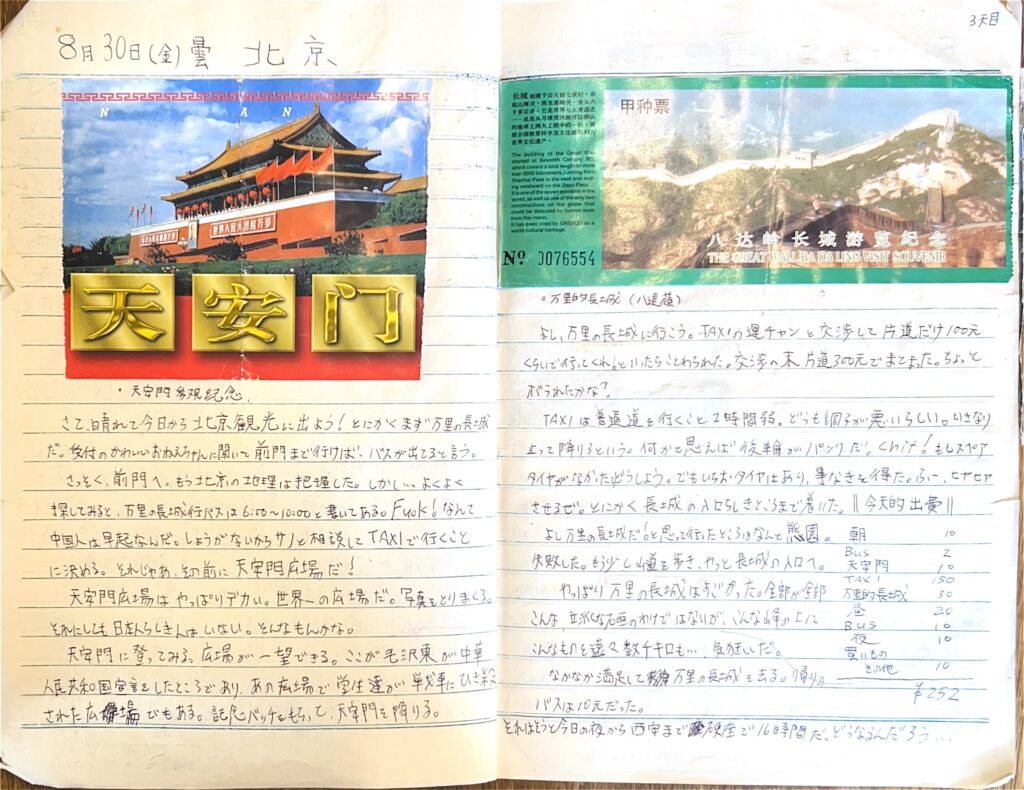 8月30日(金)曇 北京
天安门
・天安門参观紀念.
さて、晴れて今日から北京観光に出よう!とにかくまず万里の長城
だ。受付のかわいいおねえちゃんに聞いて前門まで行けば、バスが出てると言う。
さっそく、前門へ。もう北京の地理は把握した。しかし…よくよく
探してみると、万里の長城行バスは6:00~10:00と書いてある。Fuck!なんて
中国人は早起なんだ。しょうがないからサノと相談してTAXIで行くこと
に決める。それじゃあ、その前に天安門広場だ!
天安門広場はやっぱりデカい。世界一の広場だ。写真をとりまくる。
それにしても日本人らしき人はいない。そんなもんかな。
天安門に登ってみる。広場が一望できる。ここが毛沢東が中華
人民共和国宣言をしたところであり、あの広場で学生達が戦車にひき殺
された広場でもある。記念バッチをもらって、天安門を降りる。
3天目
长城 始建于公元前七世纪,东
起山海关,西至嘉峪关,全长六
千多公里,它是世界七大奇迹之
一,也是从月球用肉眼可以辩认
的地球上两大工程中的一处,被
联合国教育科学及文化组织列为
世界文化遗产。
The building of the Great Wall
started at Seventh Century BC,
which covers a total length of more
than 6000 kilometers, running from
Shanhai Pass in the east and end-
ing westward on the Jiayu Pass.
It is one of the seven wonders in the
world, as well as one of the only two
constructions on the globe that
could be detected by human eyes
from the moon.
It has been cited by UNESCO as a
world cultural heritage.
Nº 0076554
甲种票
八达岭长城游览纪念
THE GREAT WALL BA DA LING VISIT SOUVENIR
・万里的長城(八達嶺)
よし、万里の長城に行こう。TAXIの運チャンと交渉して片道だけ100元
くらいで行ってくれといったらことわられた。交渉の末片道300元でまとまった。ちょっと
ボラれたかな?
TAXIは普通道を行くこと2時間弱。どうも調子が悪いらしい。いきなり
止って降りろという。何かと思えば後輪がパンクだ。Chit!もしスペア
タイヤがなかったらどうしよう。でもいちおうタイヤはあり、事なきを得た。ふー、ヒヤヒヤ
させるぜ。とにかく長城の入口らしきところまで着いた。
よし万里の長城だ!と思って行ったところはなんと熊園。
失敗した。もう少し山道を歩き、やっと長城の入口へ。
やっぱり万里の長城はすごかった。全部が全部
こんな立派な石畳のわけではないが、こんな峰の上に
こんなものを遠々数千キロも…、気が狂いだ。
なかなか満足して万里の長城を去る。帰りの
バスは10元だった。
それはそうと今日の夜から西安まで硬座で16時間だ。どうなるんだろう…
‖今天的出費‖
朝 10
Bus 2
天安門 10
TAXI 150
万里的長城 30
昼 20
Bus 10
夜 10
買いもの
その他 10
¥252